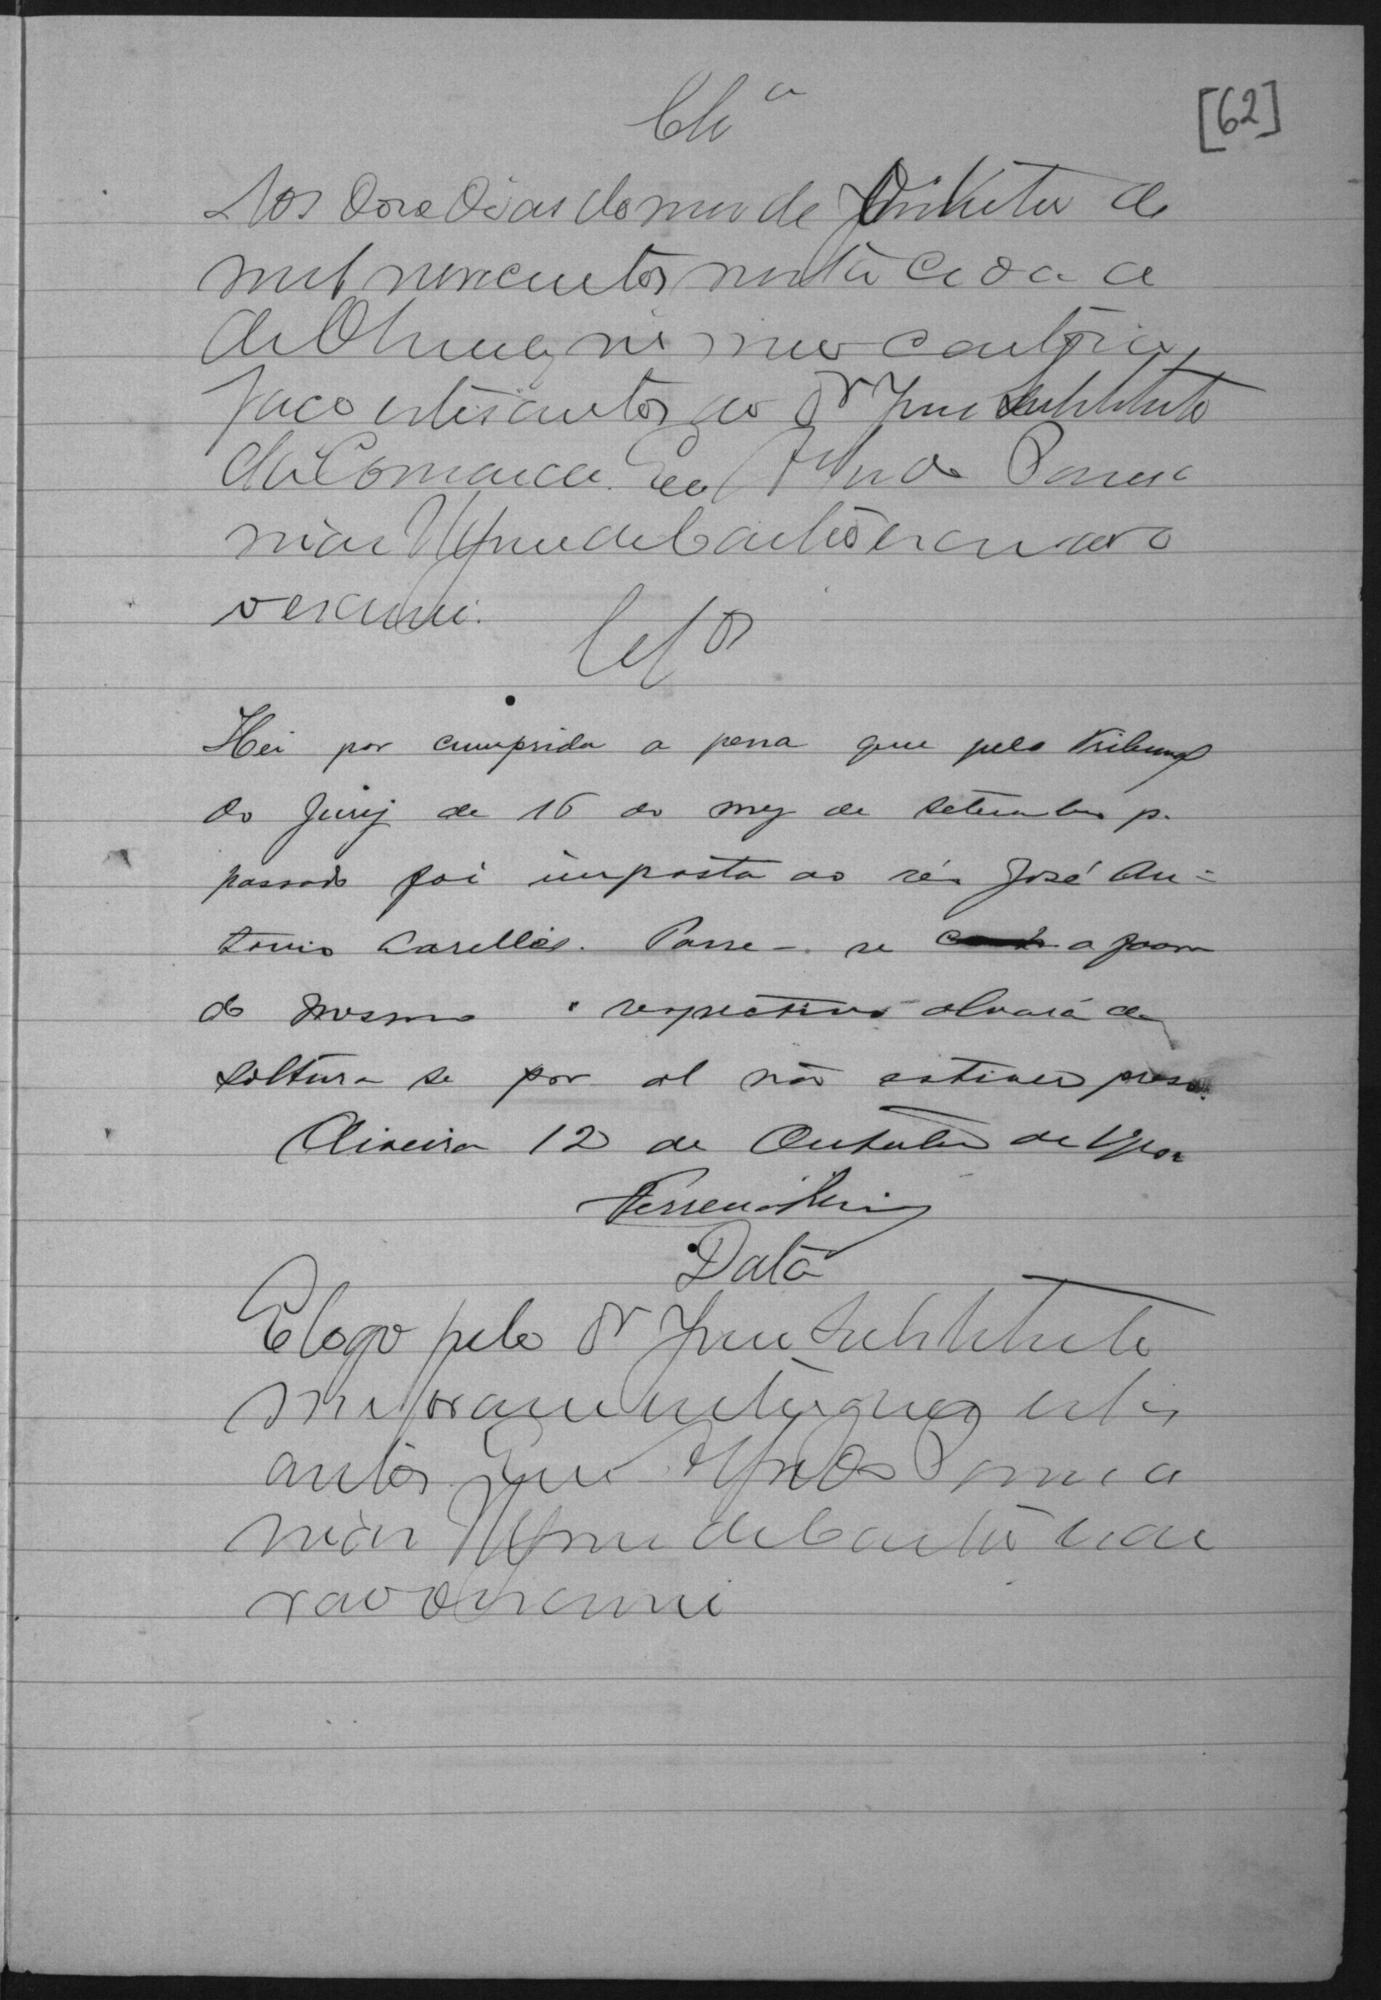 Clsa
[62]
Aos doze dias do mes de Outubro de
mil novecentos nesta cidade
de Oliveira, em meu cartorio,
faço estes autos ao Dr Juiz Substituto
da Comarca. Eu
escrivão
o escrevi.
Clsos
Hei por cumprida a pena que pelo Tribunal
do Jury de 16 do mez de Setembro p.
passado foi imposta ao réu José An-
tonio Passe-se a favor
do mesmo o respectivo alvará de
soltura se por al não estiver preso.
Oliveira 12 de Outubro de 1900
Data
E logo pelo Dr Juiz Substituto
me foram entregues estes
autos Eu
escri
vão o escrevi